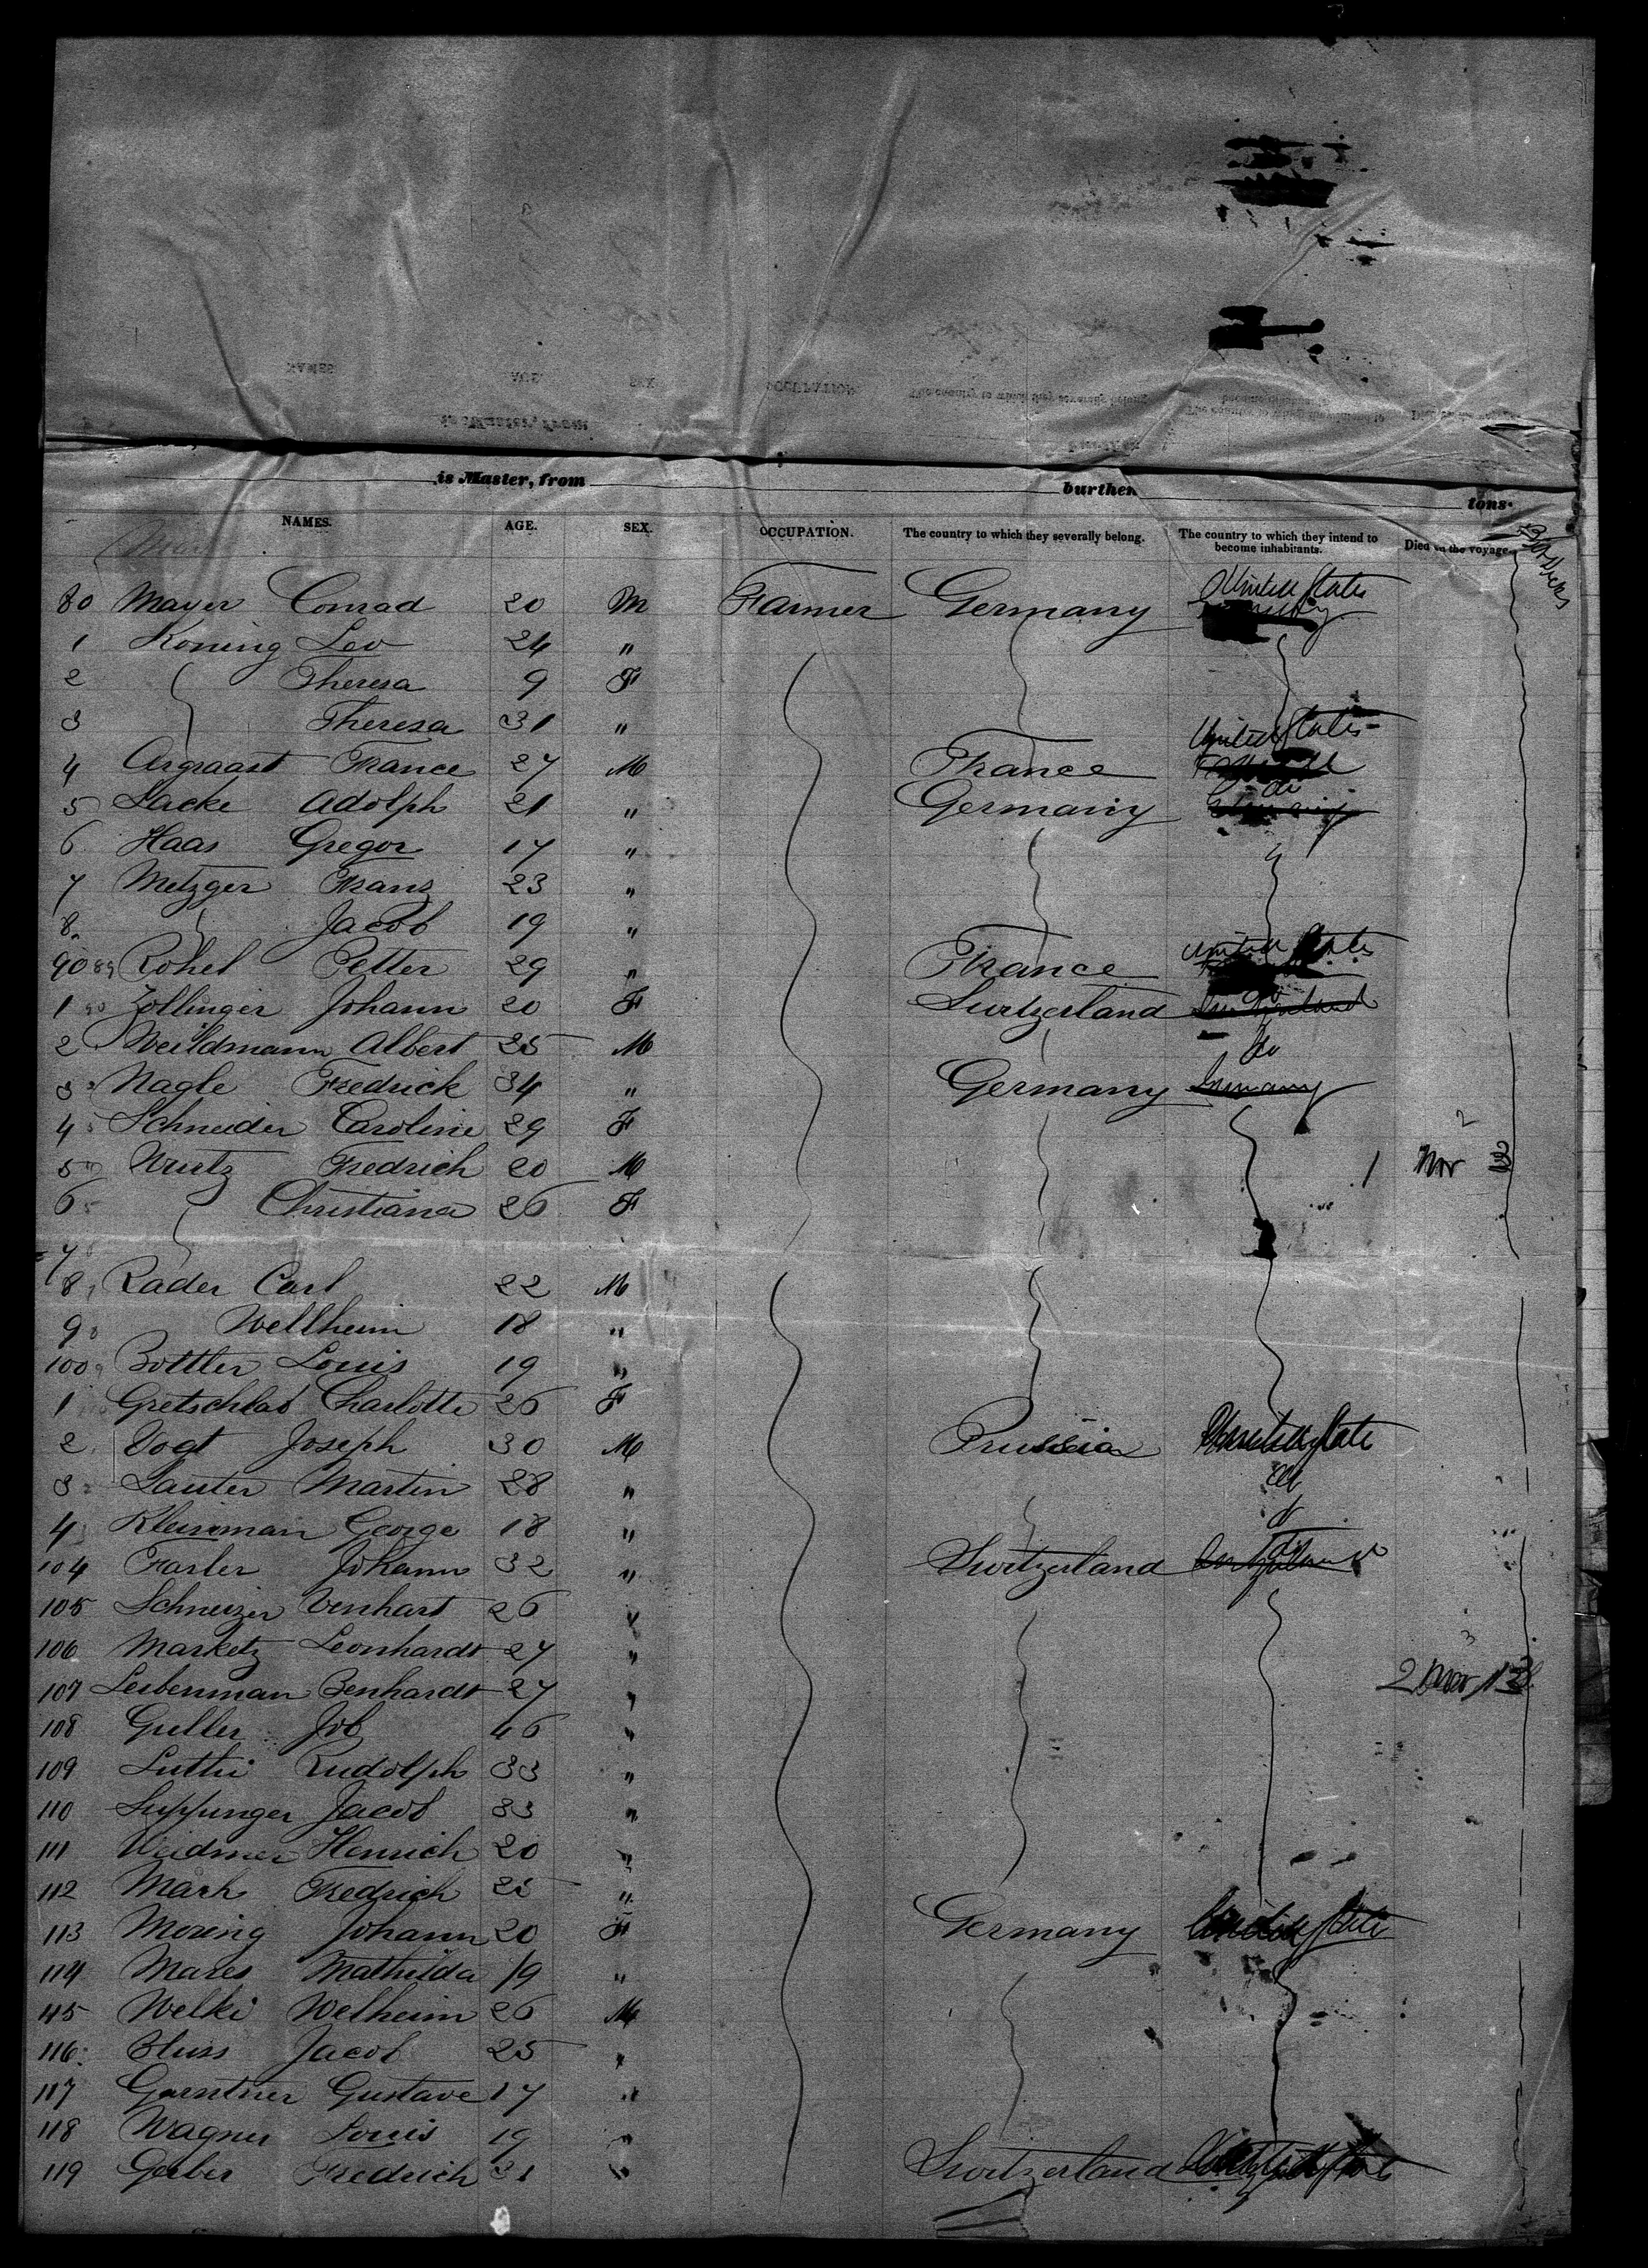 is Master, from burthen tons.
NAMES. AGE. SEX. OCCUPATION. The country to which they severally belong. The country to which they intend to become inhabitants. Died on the voyage.
80 Mayer Conrad 20 M Farmer Germany United States
1 Koning Leo 24 "
2 Theresa 9 F
3 Theresa 31 "
United States
4 Argraast France 27 M France
5 Lacke Adolph 21 " Germany do
6 Haas Gregor 17 "
7 Metzger Franz 23 "
8 Jacob 19 "
90 89 Rohel Petter 29 " France United States
1 90 Zollinger Johann 20 F Switzerland do
2 Weildmann Albert 25 M do
3 Nagle Fredrick 34 " Germany Germany
4 Schneider Caroline 29 F
5 Wurtz Fredrich 20 M 1
6 Christiana 26 F
7
8 Rader Carl 22 M
9 Wellheim 18 "
100 Bottler Louis 19 "
1 Gretschlab Charlotte 26 F
2 Vogt Joseph 30 M Prussia United State
3 Lauter Martin 28 " do
4 Kleinman George 18 " do
104 Farler Johann 32 " Switzerland do
105 Schneizer Venhart 26 "
106 Marketz Leonhardt 27 "
107 Leibenman Benhardt 27 "
108 Guller Job 46 "
109 Luthi Rudolph 33 "
110 Suppinger Jacob 33 "
111 Weidmer Henrich 20 "
112 Mark Fredrich 25 "
113 Moring Johann 20 F Germany United State
114 Mares Mathilda 19 "
115 Welki Welheim 26 M
116 Bluss Jacob 25 "
117 Garntner Gustave 17 "
118 Wagner Louis 19 "
119 Gerber Fredrich 31 " Switzerland